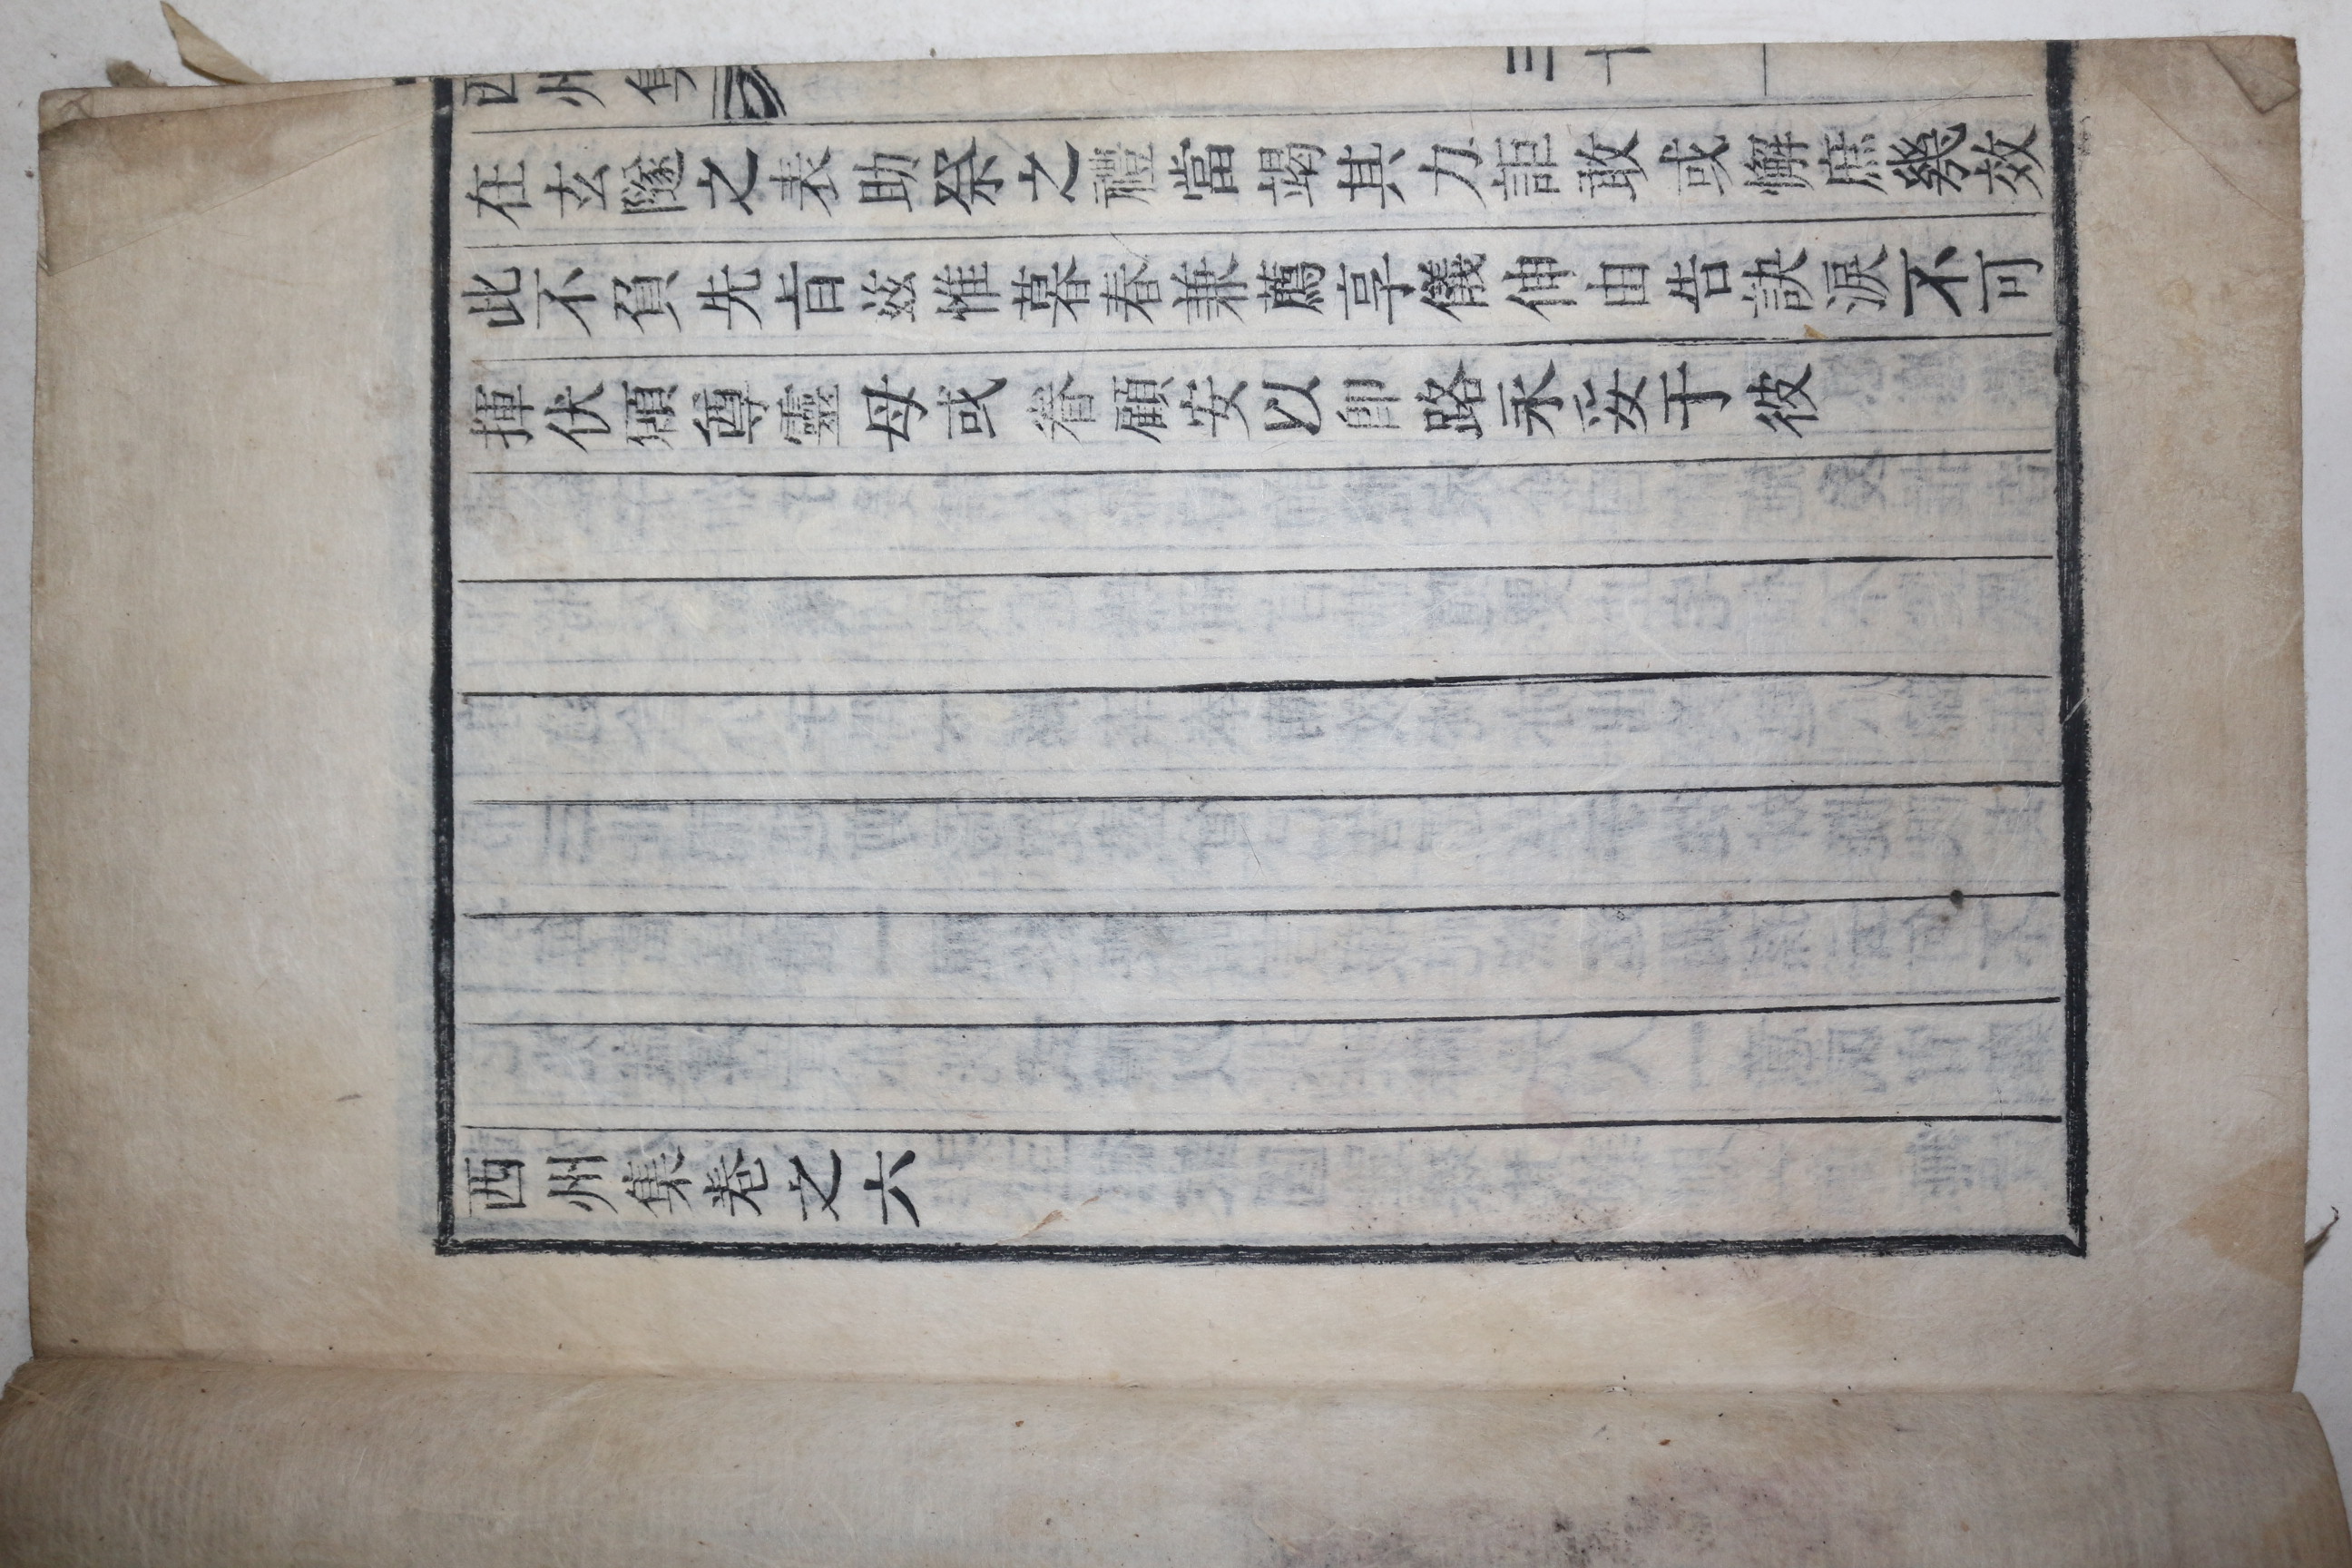 西州集
三十
在玄隧之表助祭之禮當竭其力詎敢或懈庶幾效
此不負先旨玆惟暮春兼薦享儀伸由告訣淚不可
揮伏願尊靈毋或眷顧安以卽路永妥于彼
西州集卷之六